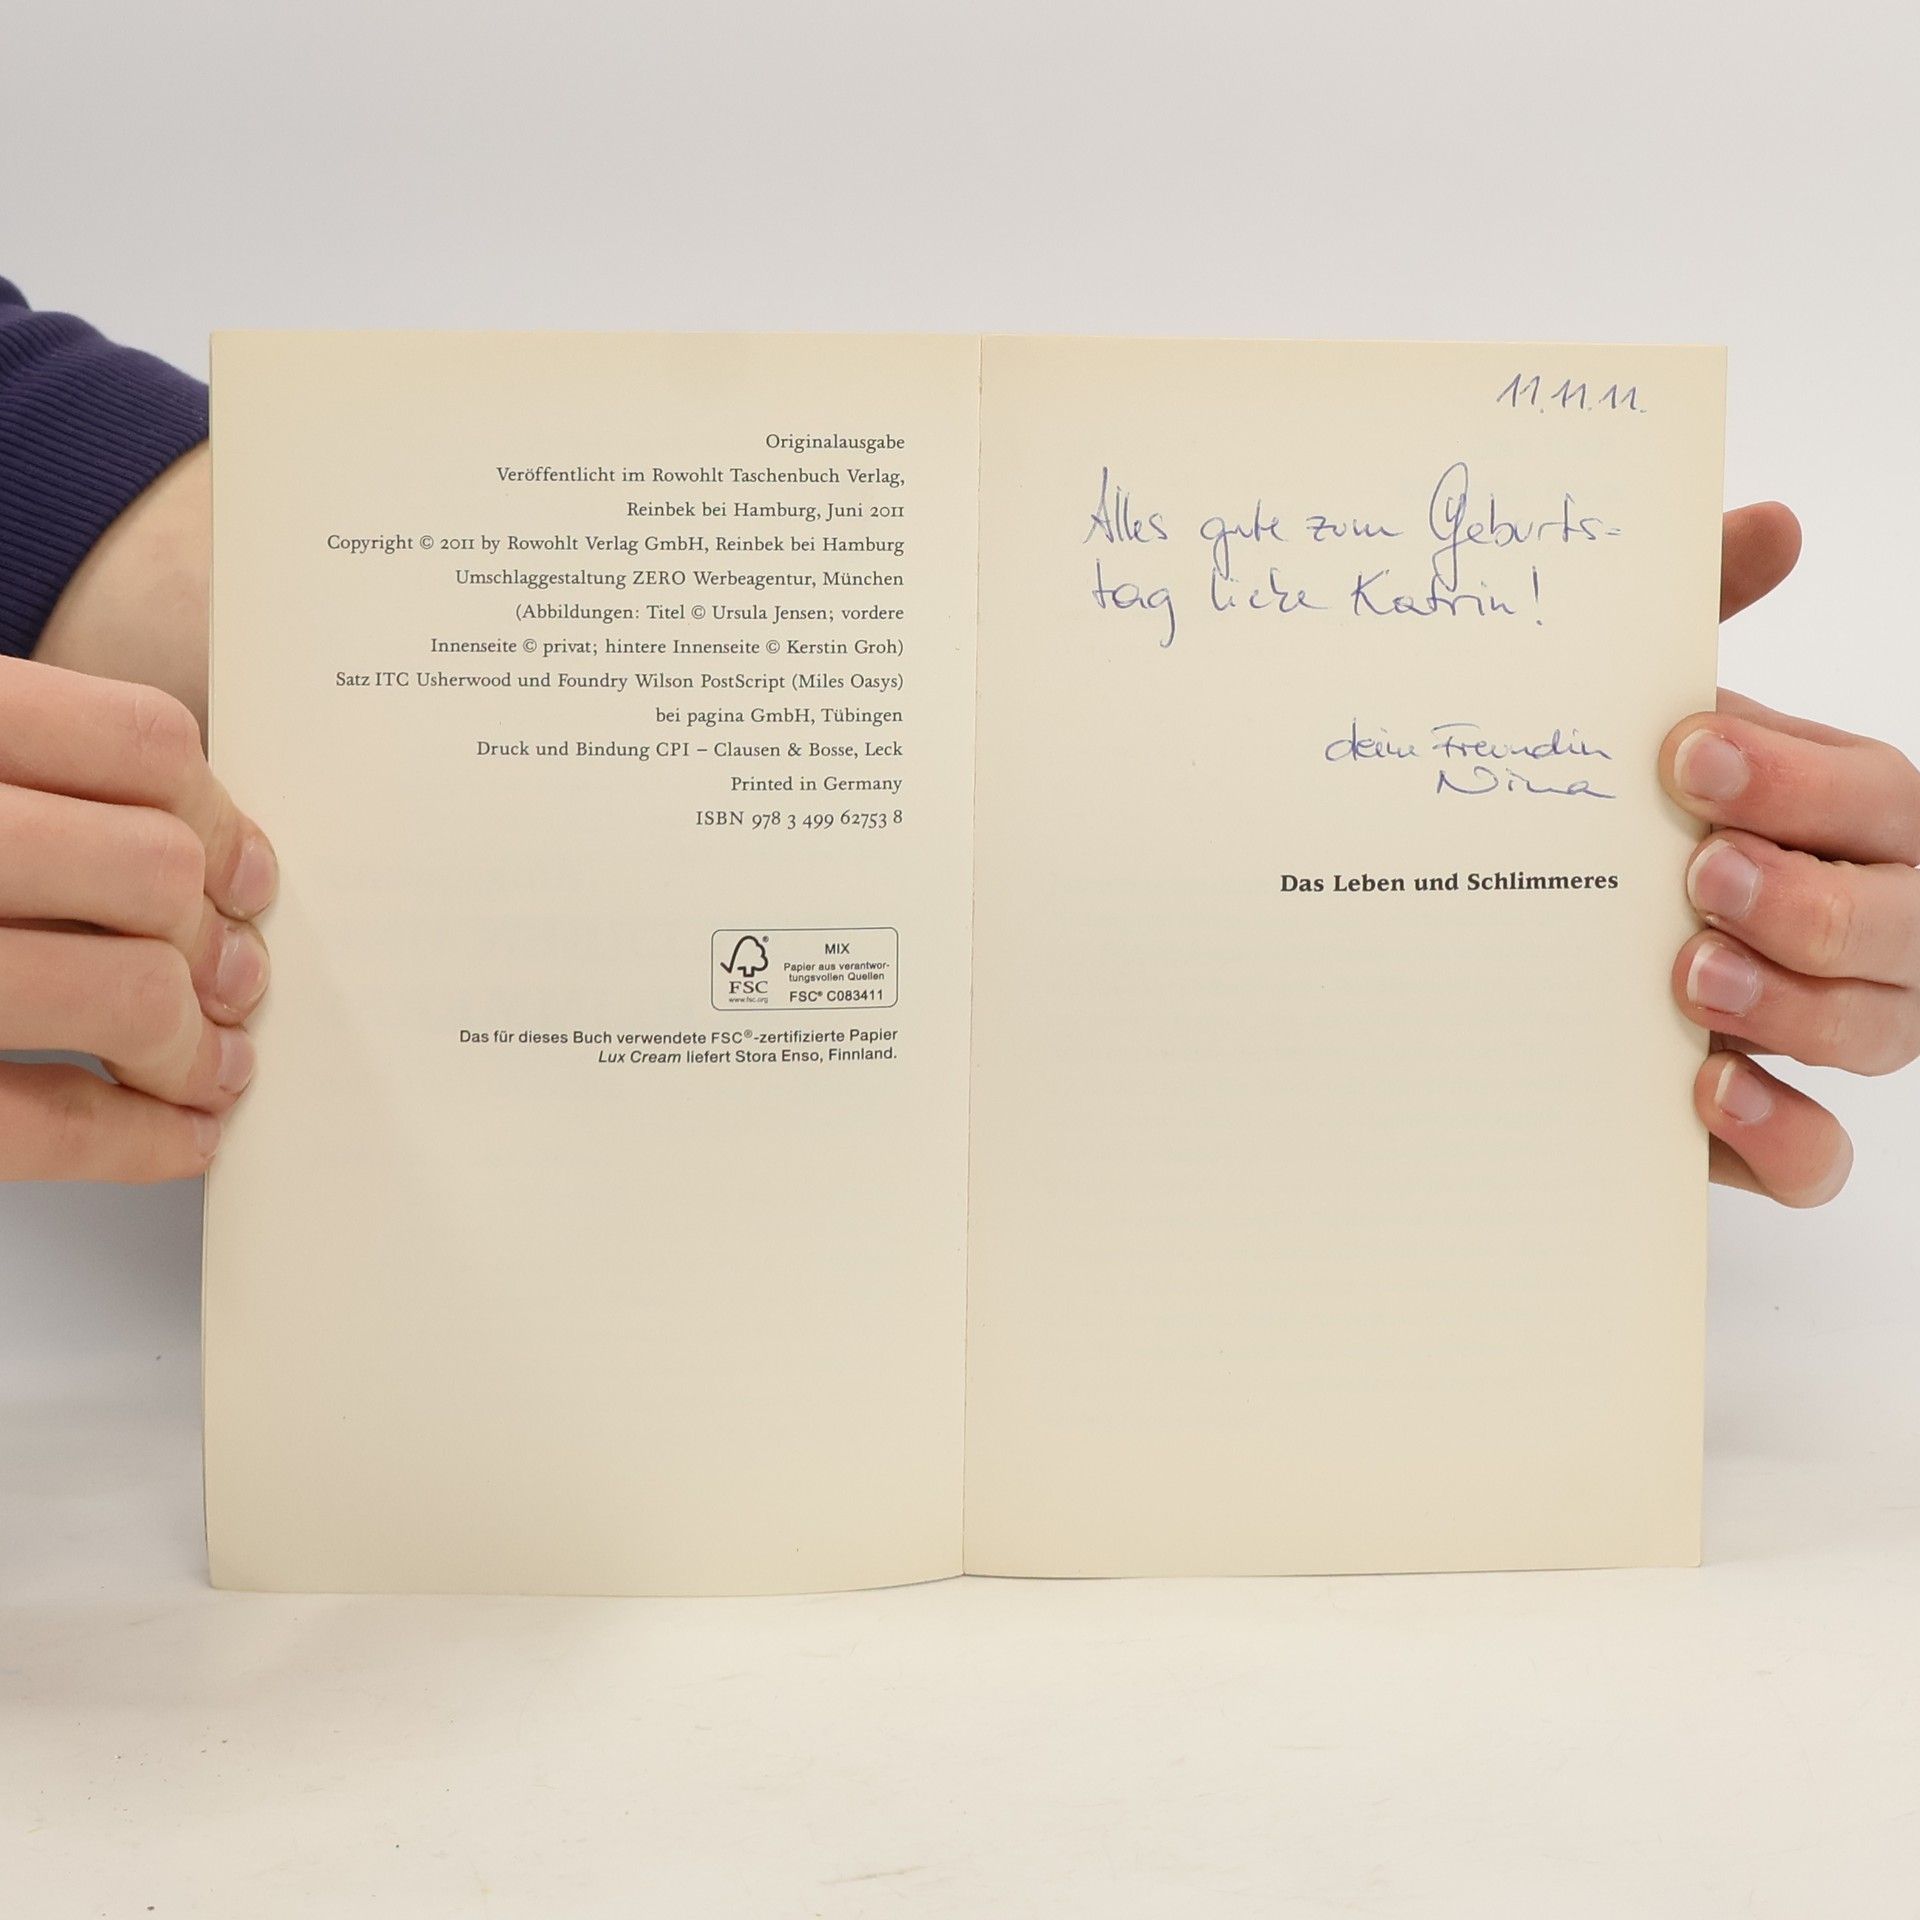 Originalausgabe
Veröffentlicht im Rowohlt Taschenbuch Verlag,
Reinbek bei Hamburg, Juni 2011
Copyright © 2011 by Rowohlt Verlag GmbH, Reinbek bei Hamburg
Umschlaggestaltung ZERO Werbeagentur, München
(Abbildungen: Titel © Ursula Jensen; vordere
Innenseite © privat; hintere Innenseite © Kerstin Groh)
Satz ITC Usherwood und Foundry Wilson PostScript (Miles Oasys)
bei pagina GmbH, Tübingen
Druck und Bindung CPI – Clausen & Bosse, Leck
Printed in Germany
ISBN 978 3 499 62753 8
FSC
www.fsc.org
MIX
Papier aus verantwor-
tungsvollen Quellen
FSC® C083411
Das für dieses Buch verwendete FSC®-zertifizierte Papier
Lux Cream liefert Stora Enso, Finnland.
11.11.11.
Alles gute zum Geburts=
tag liebe Katrin!
deine Freundin
Nina
Das Leben und Schlimmeres